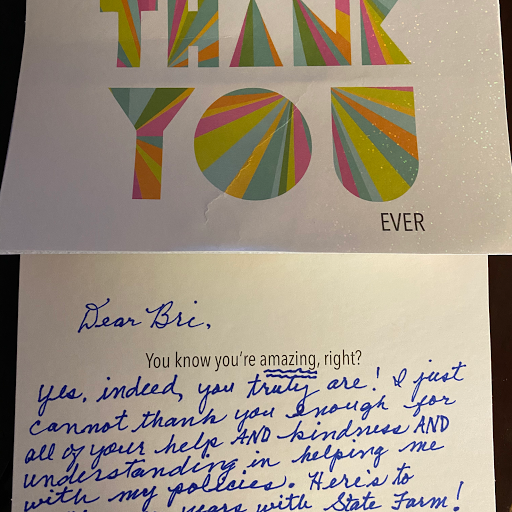 THANK
YOU
EVER
Dear Bri,
You know you're amazing, right?
Yes, indeed, you truly are! I just
cannot thank you enough for
all of your help AND kindness AND
understanding in helping me
with my policies. Here's to
years with State Farm!